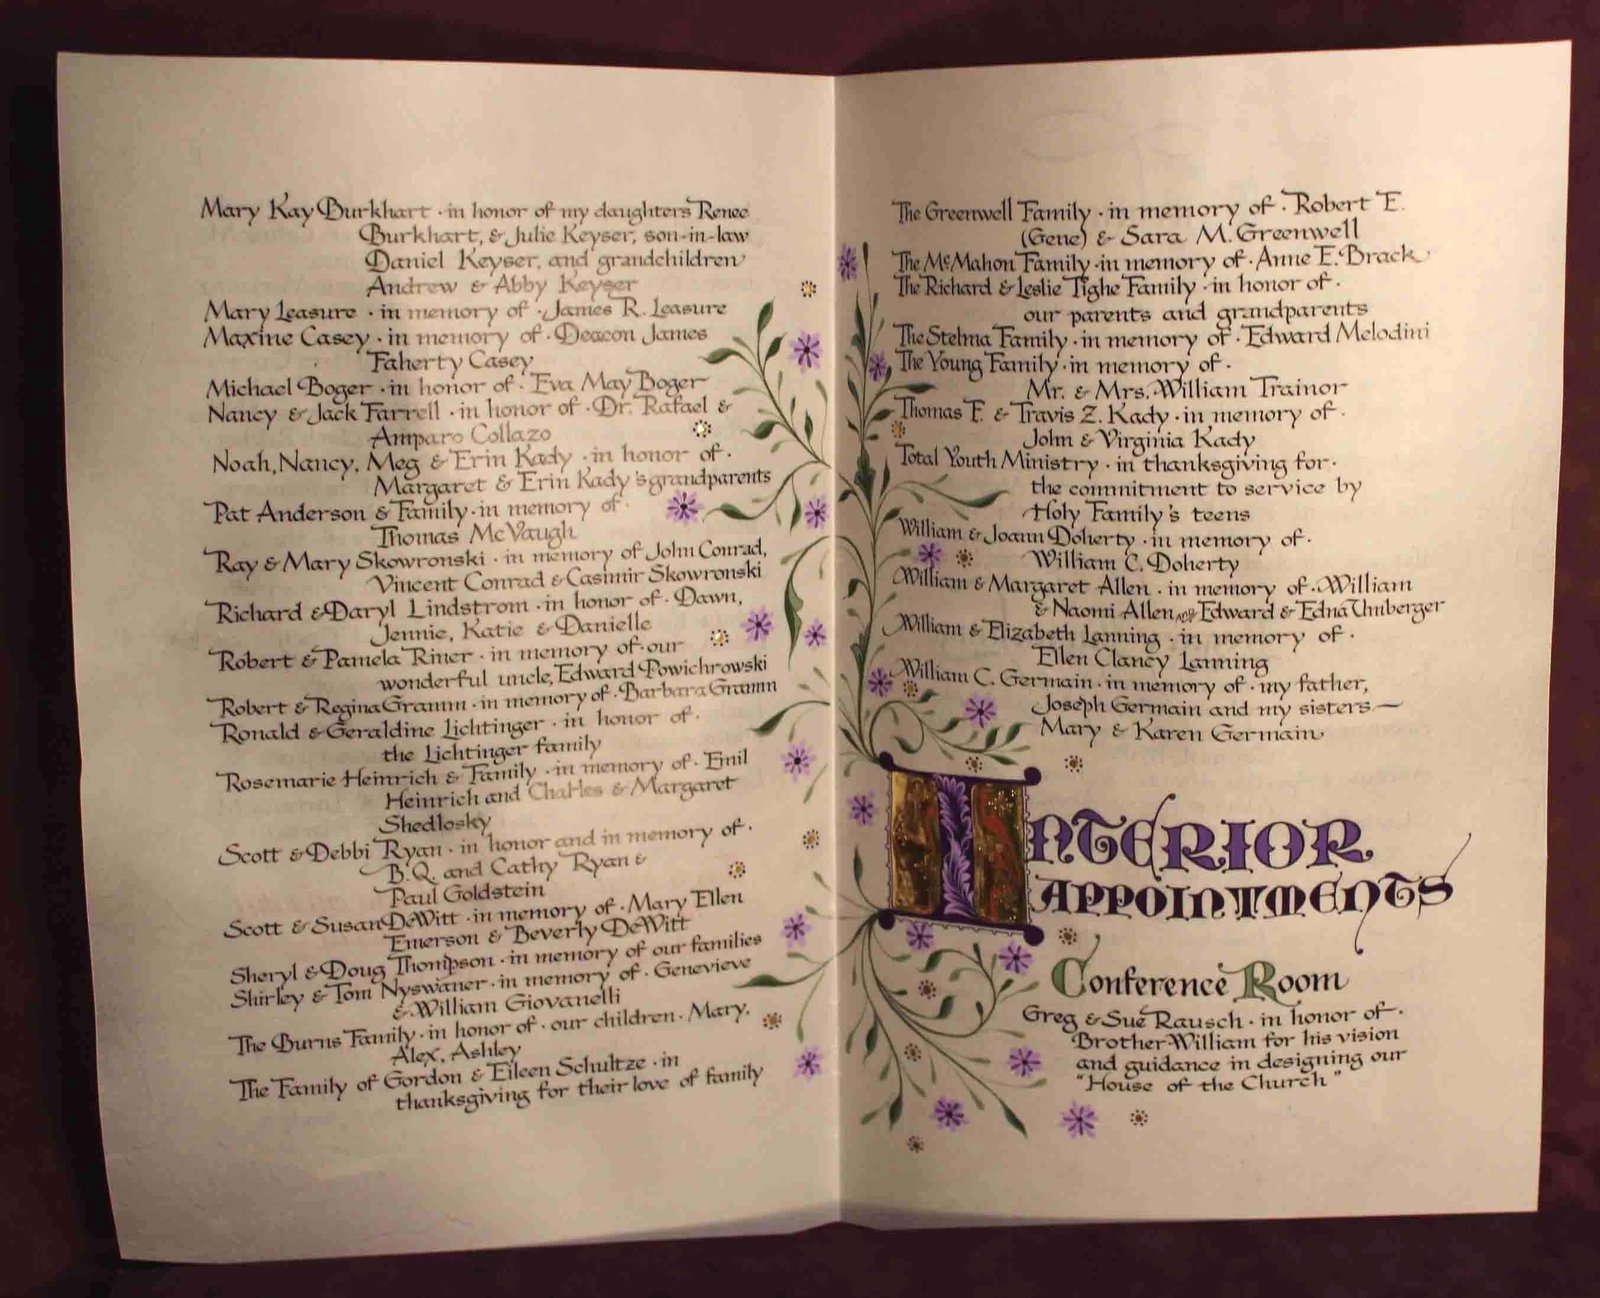 Mary Kay Burkhart · in honor of my daughters Renee
Burkhart, & Julie Keyser, son-in-law
Daniel Keyser, and grandchildren
Andrew & Abby Keyser
Mary Leasure · in memory of · James R. Leasure
Maxine Casey · in memory of · Deacon James
Faherty Casey
Michael Boger · in honor of · Eva May Boger
Nancy & Jack Farrell · in honor of · Dr. Rafael &
Amparo Collazo
Noah, Nancy, Meg & Erin Kady · in honor of ·
Margaret & Erin Kady's grandparents
Pat Anderson & Family · in memory of ·
Thomas McVaugh
Ray & Mary Skowronski · in memory of John Conrad,
Vincent Conrad & Casimir Skowronski
Richard & Daryl Lindstrom · in honor of · Dawn,
Jennie, Katie & Danielle
Robert & Pamela Riner · in memory of · our
wonderful uncle, Edward Powichrowski
Robert & Regina Gramm · in memory of · Barbara Gramm
Ronald & Geraldine Lichtinger · in honor of ·
the Lichtinger family
Rosemarie Heinrich & Family · in memory of · Emil
Heinrich and Charles & Margaret
Shedlosky
Scott & Debbi Ryan · in honor and in memory of ·
B.Q. and Cathy Ryan &
Paul Goldstein
Scott & Susan DeWitt · in memory of · Mary Ellen
Emerson & Beverly DeWitt
Sheryl & Doug Thompson · in memory of our families
Shirley & Tom Nyswaner · in memory of · Genevieve
& William Giovanelli
The Burns Family · in honor of · our children · Mary,
Alex, Ashley
The Family of Gordon & Eileen Schultze · in
thanksgiving for their love of family
The Greenwell Family · in memory of · Robert E.
(Gene) & Sara M. Greenwell
The McMahon Family · in memory of · Anne E. Brack
The Richard & Leslie Tighe Family · in honor of ·
our parents and grandparents
The Stelma Family · in memory of · Edward Melodini
The Young Family · in memory of ·
Mr. & Mrs. William Trainor
Thomas F. & Travis Z. Kady · in memory of ·
John & Virginia Kady
Total Youth Ministry · in thanksgiving for ·
the commitment to service by
Holy Family's teens
William & Joann Doherty · in memory of ·
William C. Doherty
William & Margaret Allen · in memory of · William
& Naomi Allen and Edward & Edna Umberger
William & Elizabeth Lanning · in memory of ·
Ellen Clancy Lanning
William C. Germain · in memory of · my father,
Joseph Germain and my sisters —
Mary & Karen Germain
INTERIOR
APPOINTMENTS
Conference Room
Greg & Sue Rausch · in honor of ·
Brother William for his vision
and guidance in designing our
"House of the Church"